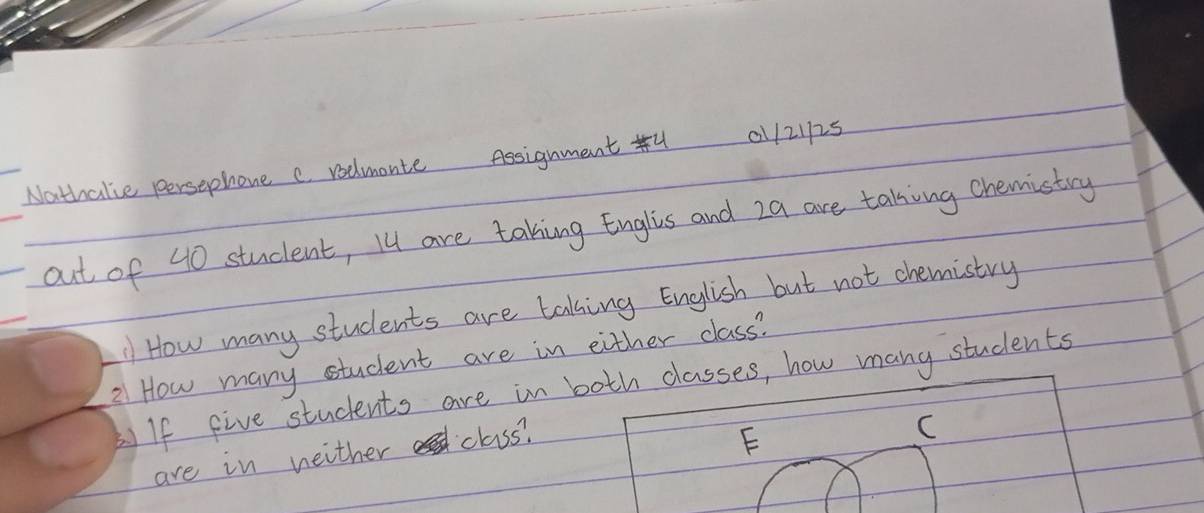 Nathalie Persephone C. Belmonte Assignment #4 01/21/25
out of 40 student, 14 are taking Englis and 29 are taking Chemistry
1) How many students are taking English but not chemistry
2) How many student are in either class?
3) If five students are in both classes, how many students
are in neither class?
E C